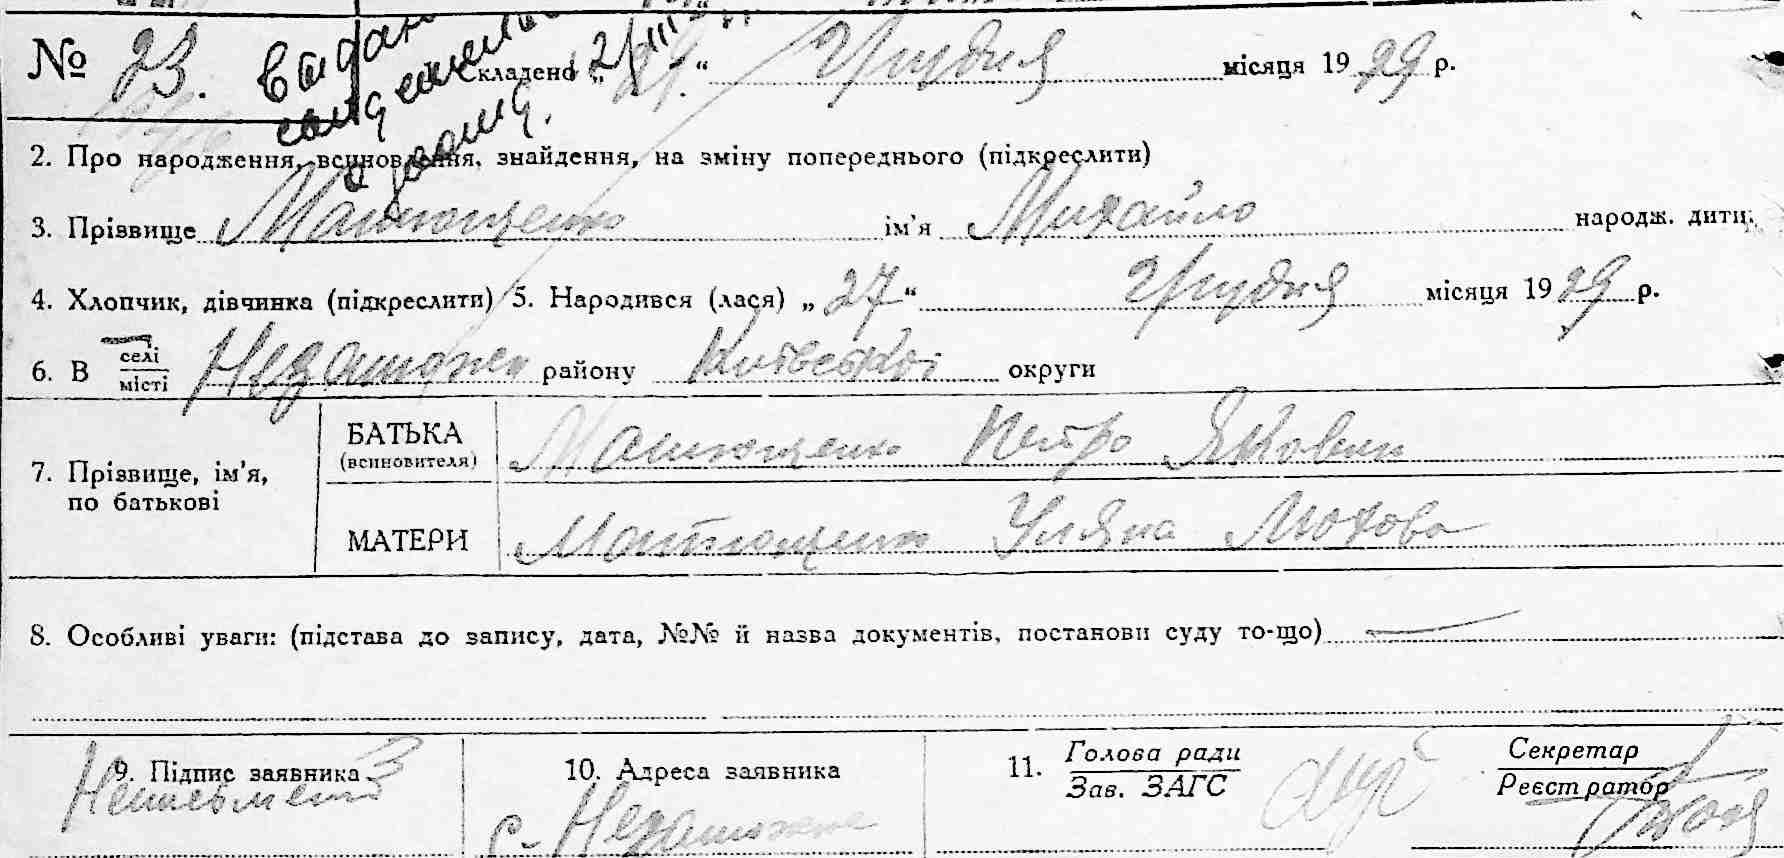 № 23. Складено „29.“ Грудня місяця 1929 р.
2. Про народження, всиновлення, знайдення, на зміну попереднього (підкреслити)
3. Прізвище Матющенко ім’я Михайло народж. дити.
4. Хлопчик, дівчинка (підкреслити) 5. Народився (лася) „27“ Грудня місяця 1929 р.
6. В селі
місті
района Київської округи
7. Прізвище, ім’я,
по батькові
БАТЬКА
(всиновителя)
Матющенко Петро Якович
МАТЕРИ
Матющенко Уляна
8. Особливі уваги: (підстава до запису, дата, №№ й назва документів, постанови суду то-що)
9. Підпис заявника
10. Адреса заявника
с.
11. Голова ради
Зав. ЗАГС
Секретар
Реєстратор